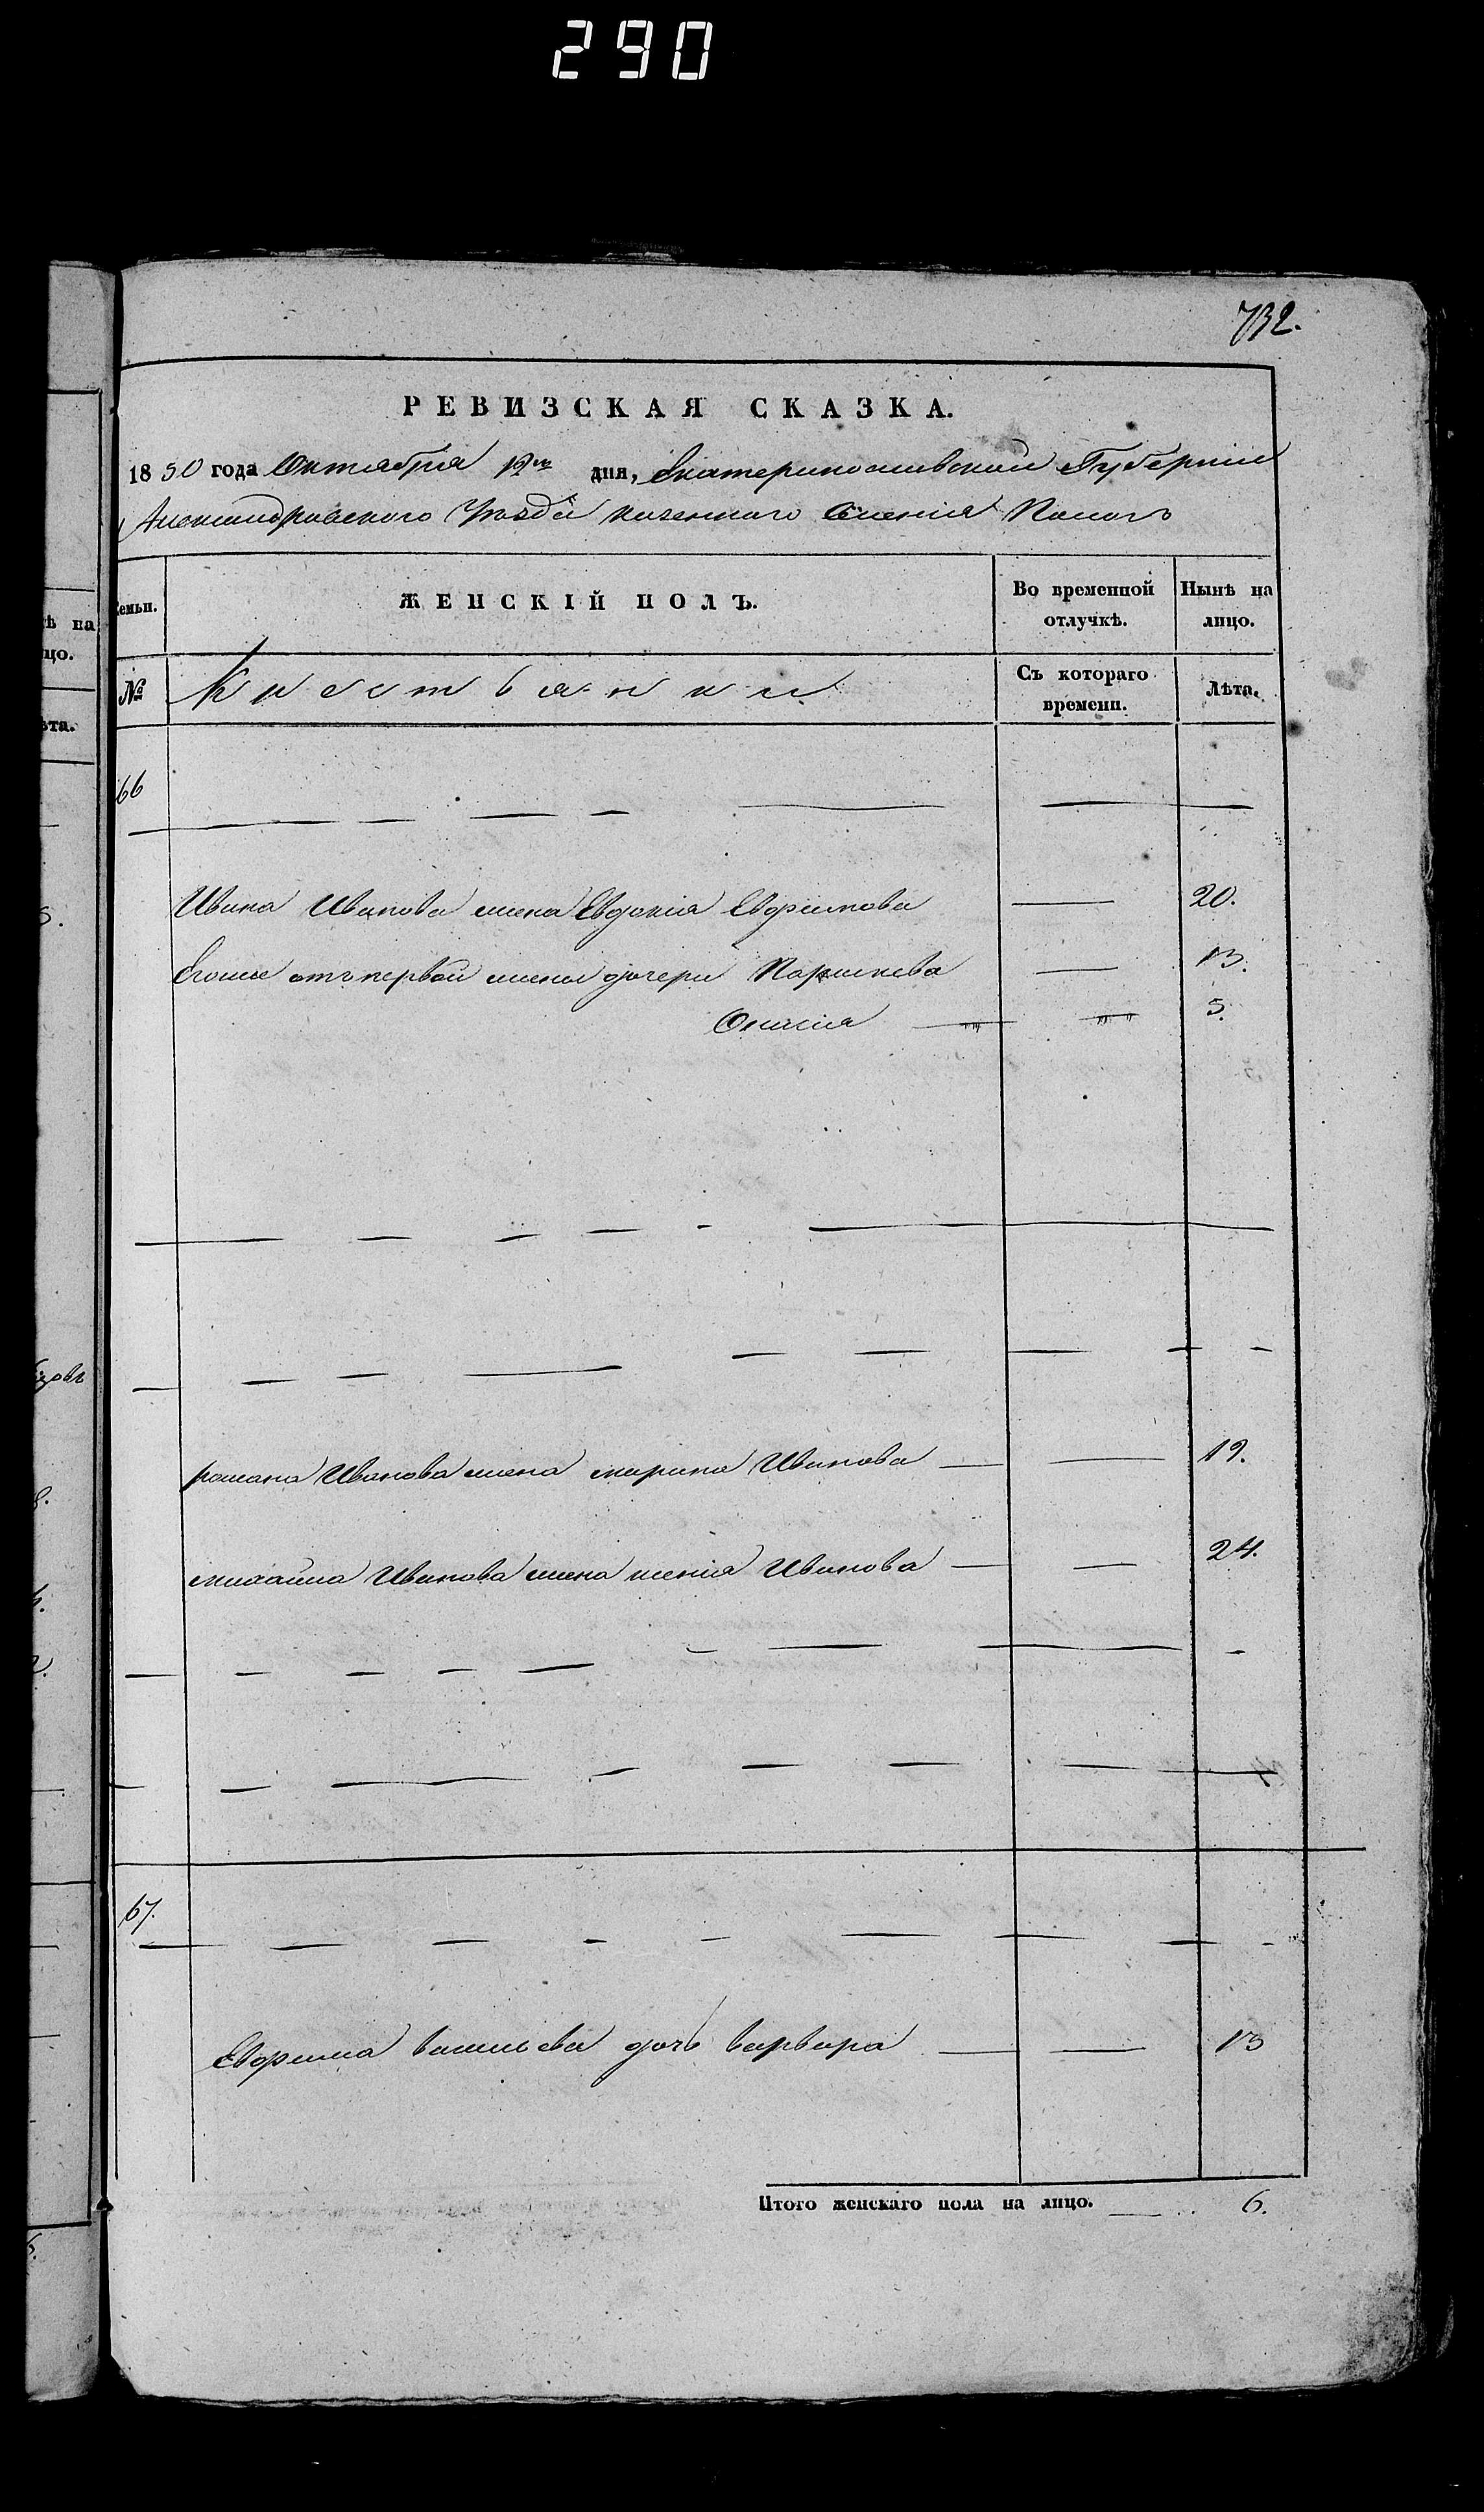 290
732.
РЕВИЗСКАЯ СКАЗКА.
1850 года Октября дня, Екатеринославской Губернии
Александровского Уезда казенного селения Пологъ
Семьи.
ЖЕНСКІЙ ПОЛЪ.
Во временной отлучкѣ.
Нынѣ на лицо.
№
Крестьянки
Съ котораго времени.
Лѣта.
66
Ивана Иванова жена Евдокія Евфимова 20.
Егоже отъ первой жены дочери Параскева 13.
5.
романа Иванова жена марина Иванова 19.
михаила Иванова жена ксенія Иванова 24.
67.
Евфима васильева дочь варвара 13
Итого женскаго пола на лицо. 6.